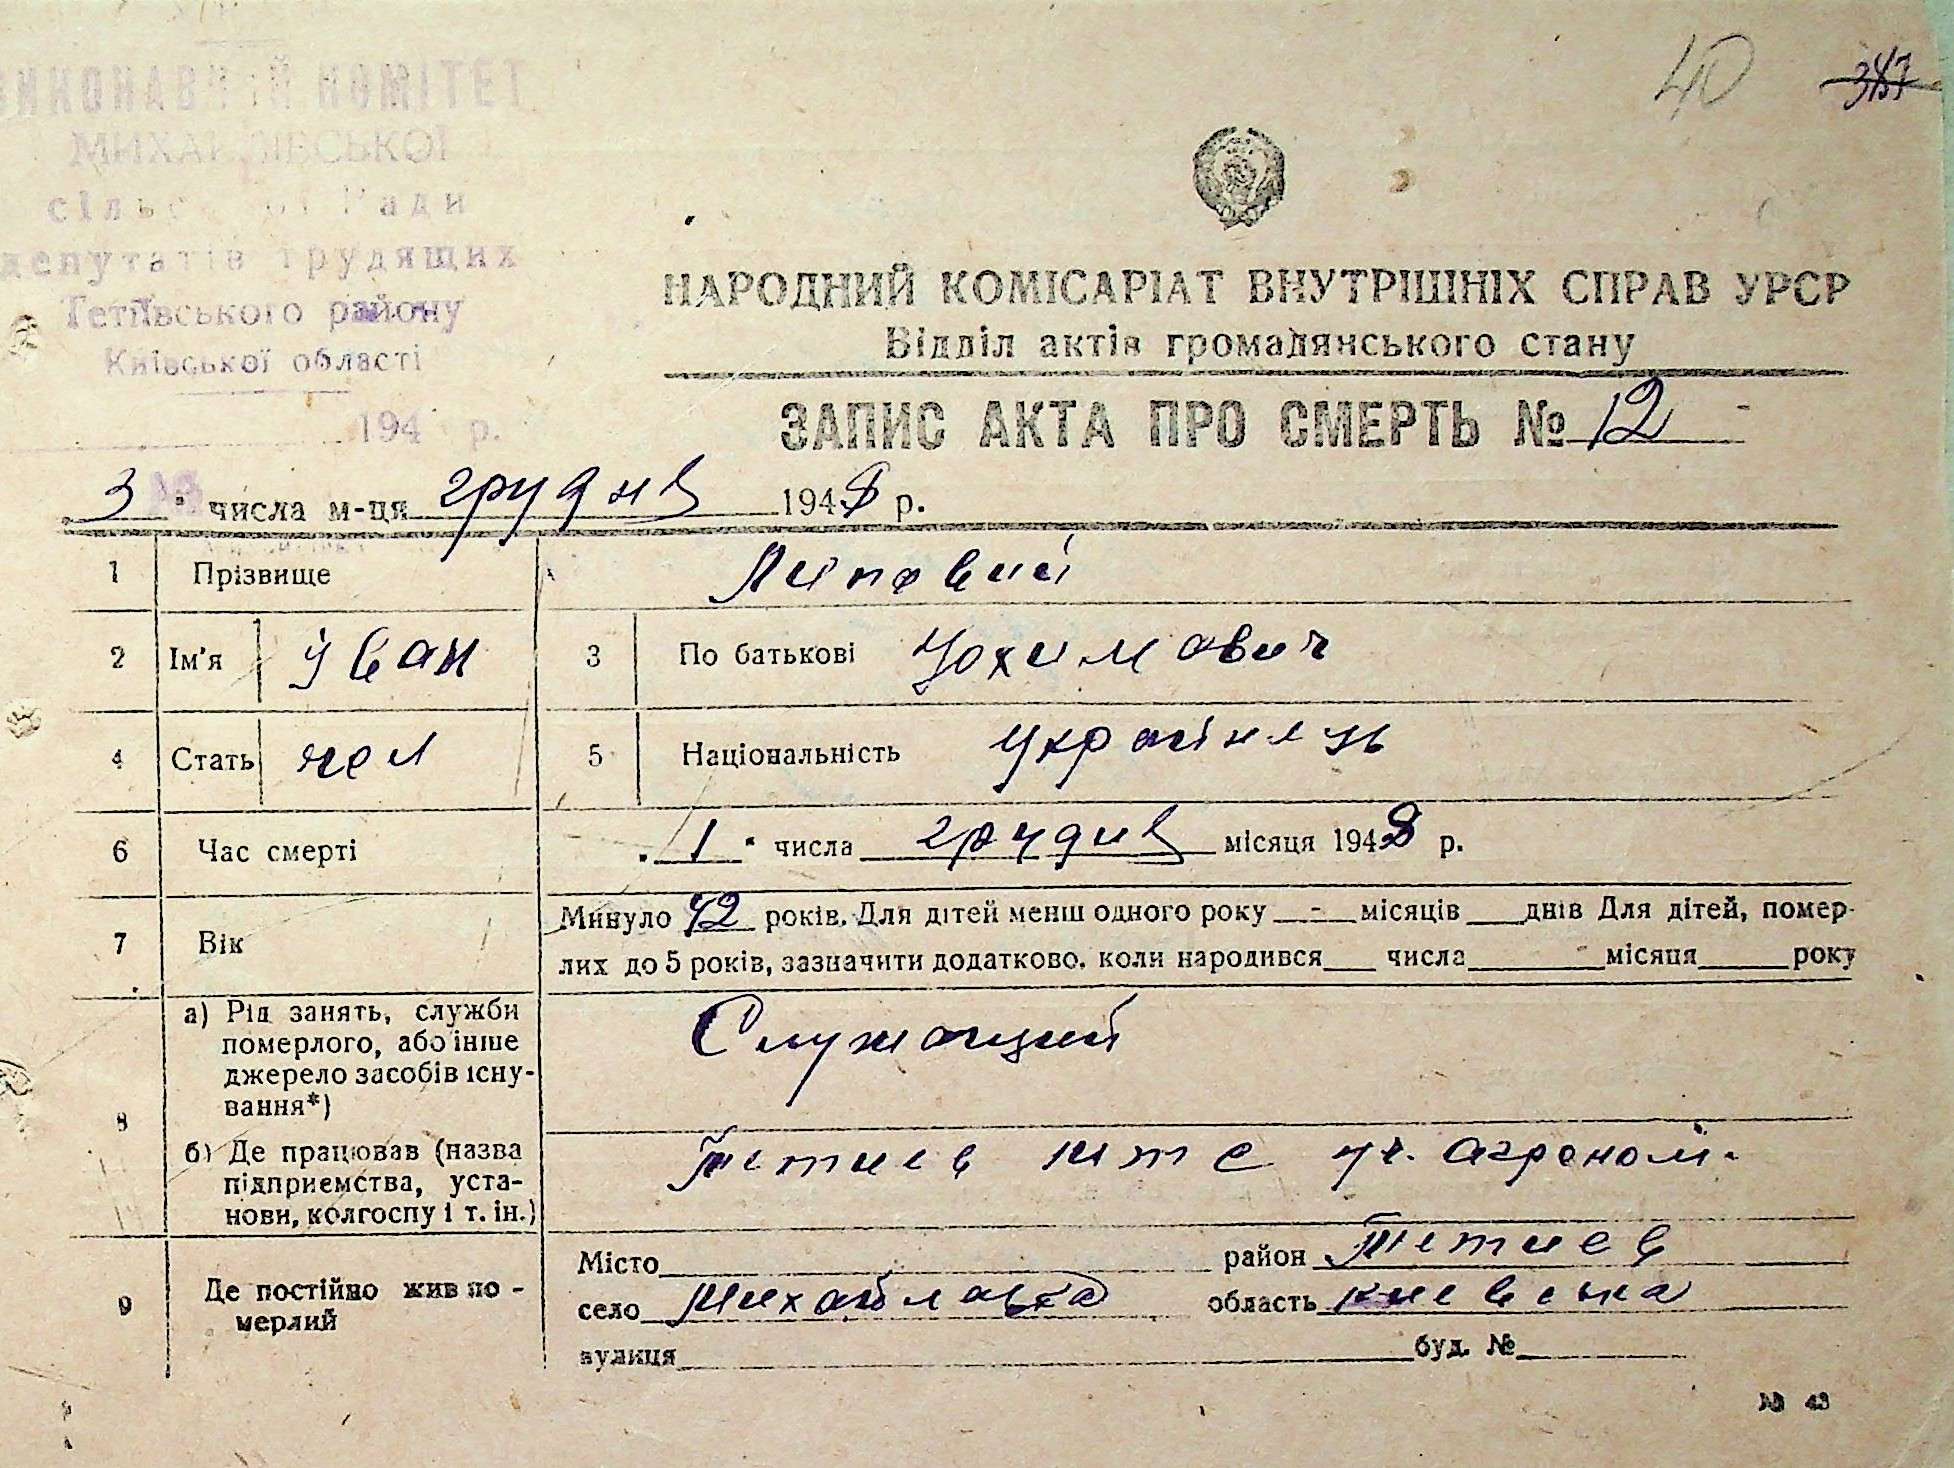 40 347
ВИКОНАВЧИЙ КОМІТЕТ
МИХАЙЛІВСЬКОЇ
сільської Ради
депутатів трудящих
Тетіївського району
Київської області
194 р.
НАРОДНИЙ КОМІСАРІАТ ВНУТРІШНІХ СПРАВ УРСР
Відділ актів громадянського стану
ЗАПИС АКТА ПРО СМЕРТЬ № 12
3 числа м-ця грудня 1948 р.
1 Прізвище Липовий
2 Ім'я Іван 3 По батькові Йохимович
4 Стать чол 5 Національність українець
6 Час смерті „1" числа грудня місяця 1948 р.
7 Вік Минуло 42 років. Для дітей менш одного року - місяців днів Для дітей, помер-
лих до 5 років, зазначити додатково, коли народився числа місяця року
8 а) Рід занять, служби
померлого, або інше
джерело засобів існу-
вання*) Служащий
б) Де працював (назва
підприємства, уста-
нови, колгоспу і т. ін.) Тетиев мтс уч. агроном.
9 Де постійно жив по-
мерлий
Місто район Тетиев
село Михайловка область Киевська
вулиця буд. №
№ 43